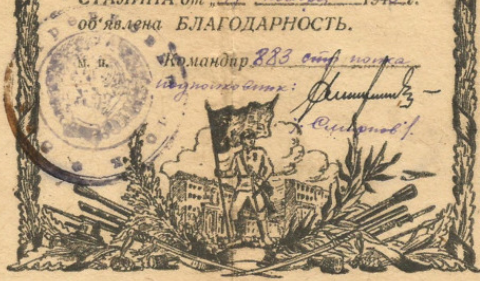 СТАЛИНА от „
об‘явлена БЛАГОДАРНОСТЬ.
М. П.
Командир 883 стр полка
подполковник:
/Смирнов/